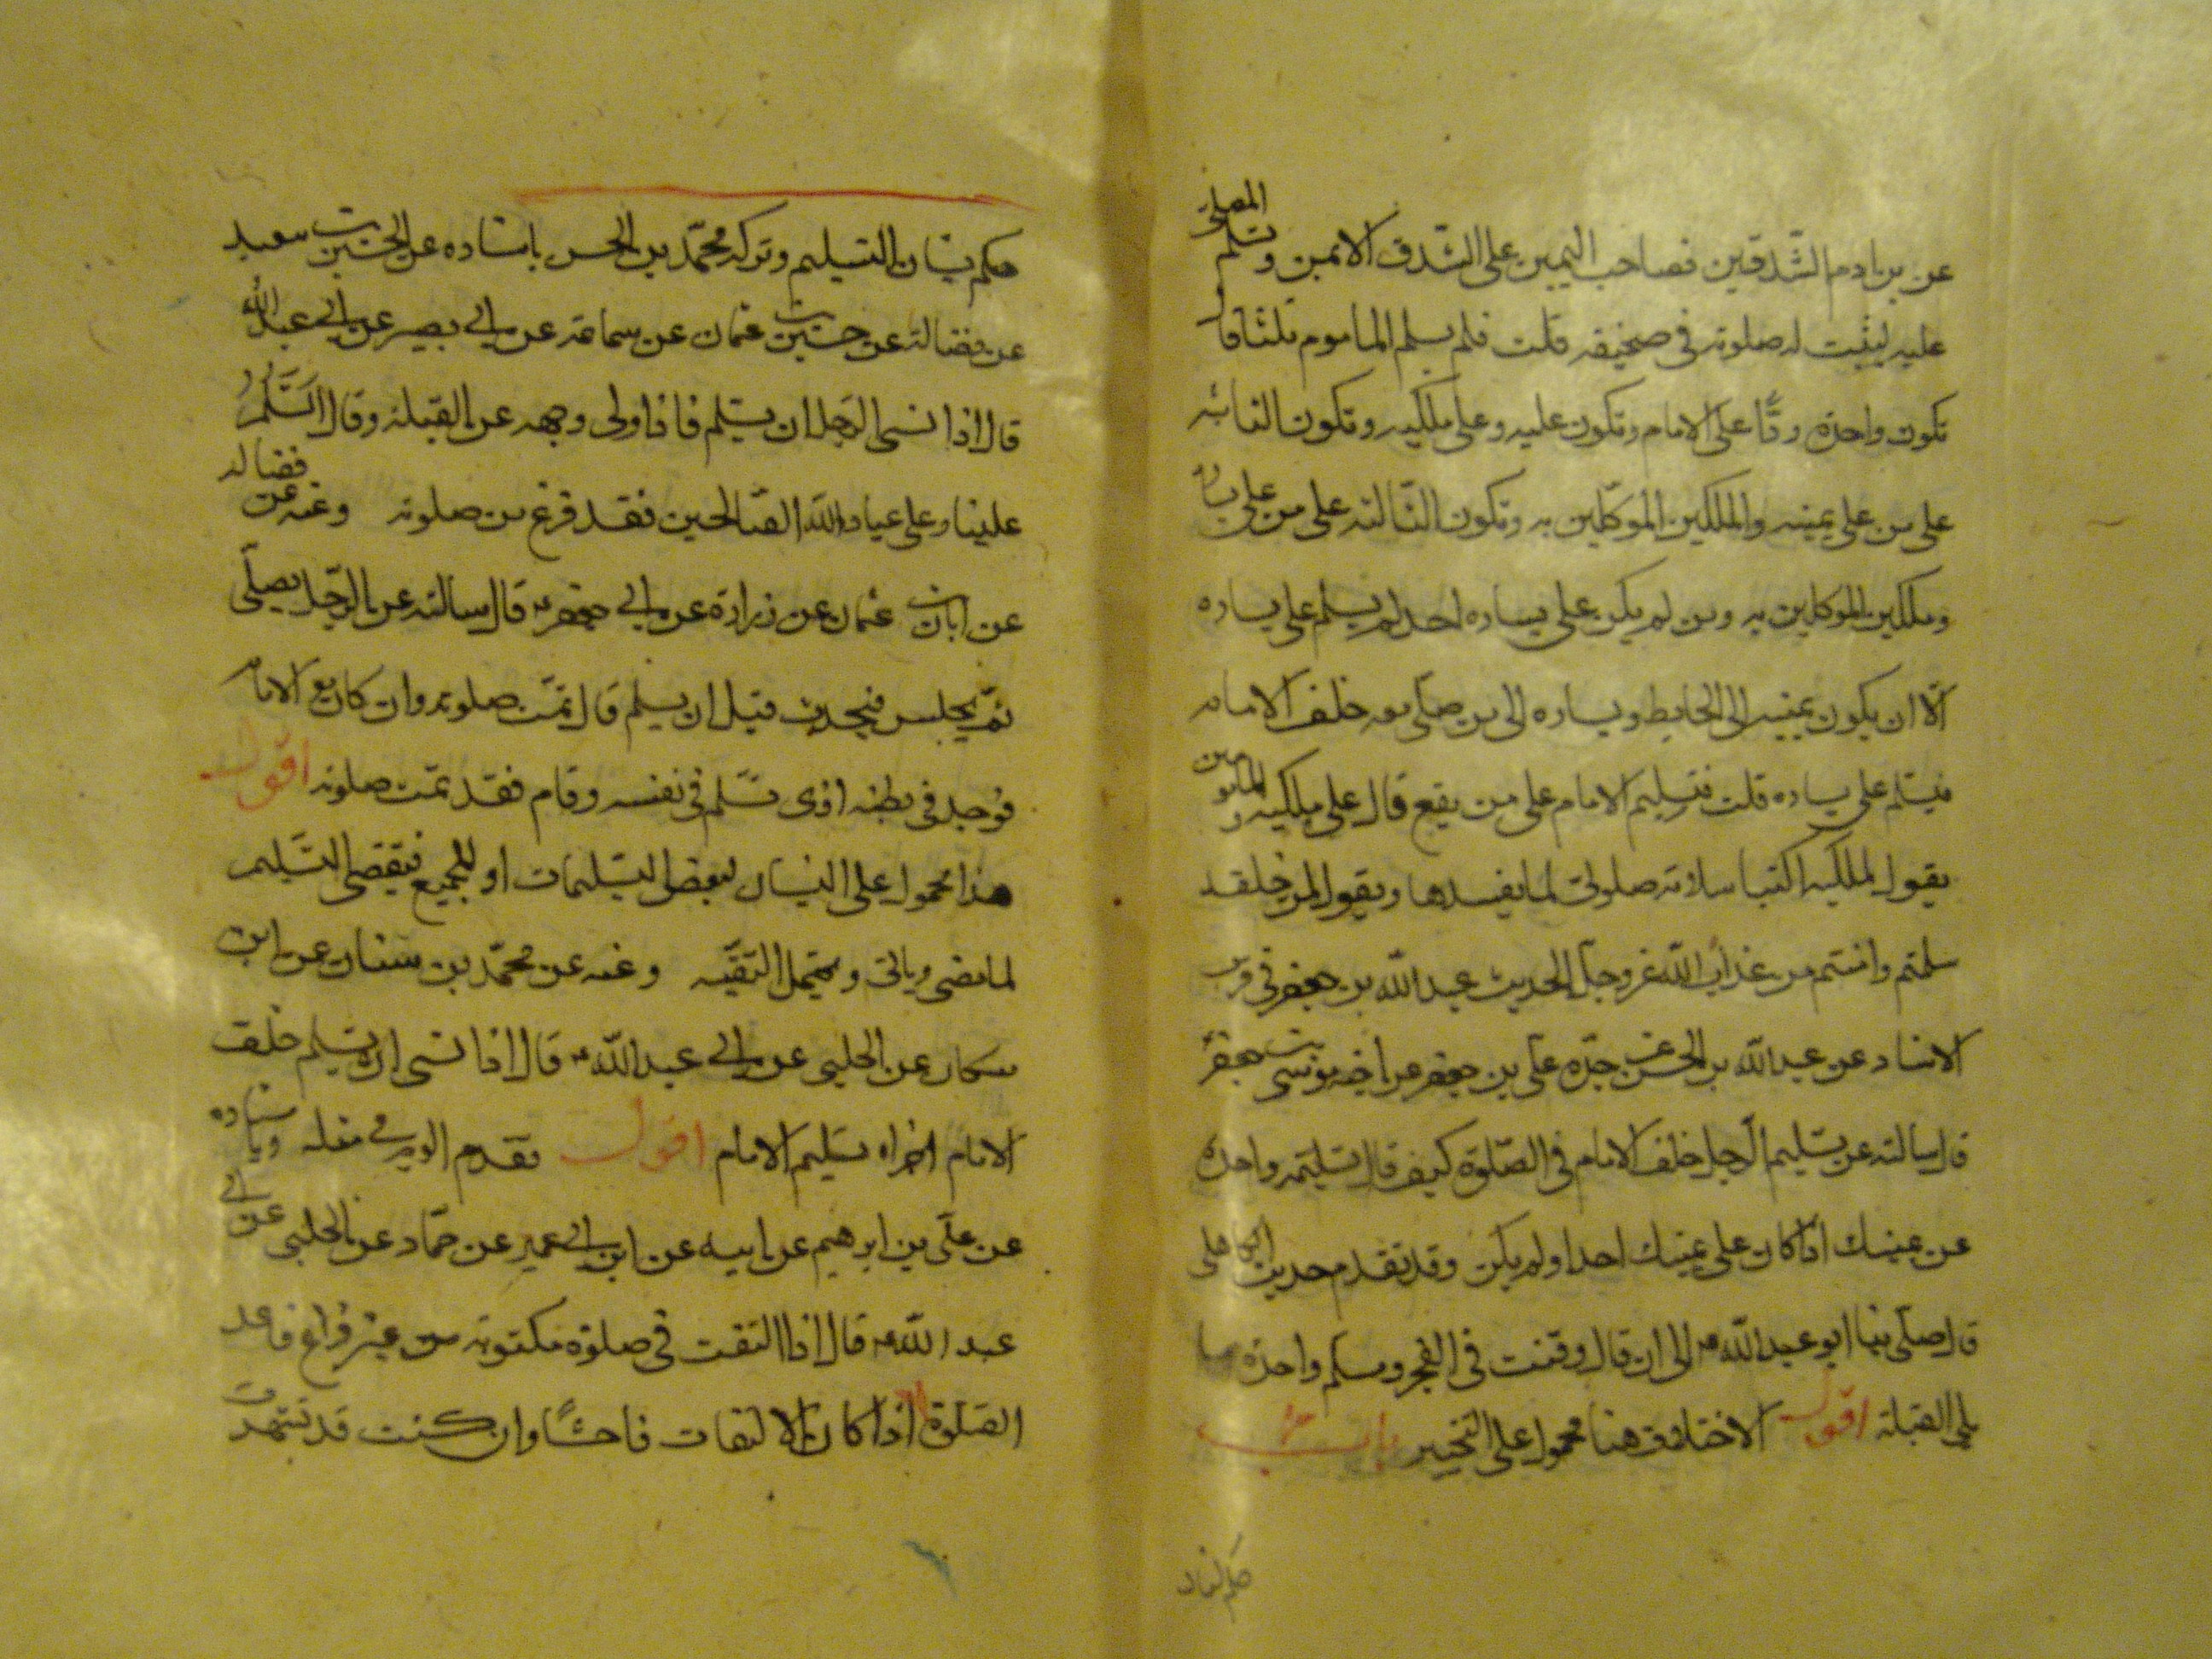 عن بن ادم الشدقين فصاحب اليمين على الشدق الايمن وتسلم المصلي
عليه ليثبت له صلوته في صحيفته قلت فلم يسلم الماموم ثلثا قال
تكون واحدة ردّا على الامام وتكون عليه وعلى ملكيه وتكون الثانيه
على من على يمينه والملكين الموكلين به وتكون الثالثه على من على يساره
وملكين الموكلين به ومن لم يكن على يساره احد لم يسلم على يساره
الّا ان يكون يمينه الى الحايط ويساره الى من صلى معه خلف الامام
فيسلم على يساره قلت فتسليم الامام على من يقع قال على ملكيه والمامومين
يقول لملكيه اكتبا سلامة صلوتي لما يفسدها ويقول لمن خلفه
سلمتم وامنتم من عذاب الله عز وجل الحديث عبد الله بن جعفر في قرب
الاسناد عن عبد الله بن الحسن عن جدّه علي بن جعفر عن اخيه موسى بن جعفر
قال سالته عن تسليم الرجل خلف الامام في الصّلوة كيف قال تسليمه واحدة
عن يمينك اذا كان على يمينك احد او لم يكن وقد تقدم حديث الكاهلي
قال صلى بنا ابو عبد الله الى ان قال وقنت في الفجر وسلم واحدة مما
يلي القبلة اقول الاختلاف هنا محمول على التخيير باب
حكم نسيان
حكم نسيان التسليم وتركه محمّد بن الحسن باسناده عن الحسين بن سعيد
عن فضالة عن حسين بن عثمان عن سماعة عن ابي بصير عن ابي عبد الله
قال اذا نسى الرجل ان يسلم فاذا ولى وجهه عن القبلة وقال السَّلَمُ
علينا وعلى عباد الله الصّالحين فقد فرغ من صلوته وعنه عن فضاله
عن ابان بن عثمان عن زرارة عن ابي جعفر قال سالته عن الرّجل يصلّي
ثمّ يجلس فيحدث قبل ان يسلم قال تمّت صلوته وان كان مع الامام
فوجد في بطنه اذى سلّم في نفسه وقام فقد تمت صلوته اقول
هذا محمول على النسيان لبعض التسليمات او للجميع فيقضي التسليم
لما مضى وياتي ويحتمل التقيّه وعنه عن محمّد بن سنان عن ابن
مسكان عن الحلبي عن ابي عبد الله قال اذا نسى ان يسلم خلف
الامام اجزاه تسليم الامام اقول تقدم الوجه في مثله وباسناده
عن علّي بن ابرهيم عن ابيه عن ابن ابي عمير عن حمّاد عن الحلبي عن ابي
عبد الله قال اذا التفت في صلوة مكتوبة من غير فراغ فاعد
الصّلوة اذا كان الالتفات فاحشًا وان كنت قد تشهدت